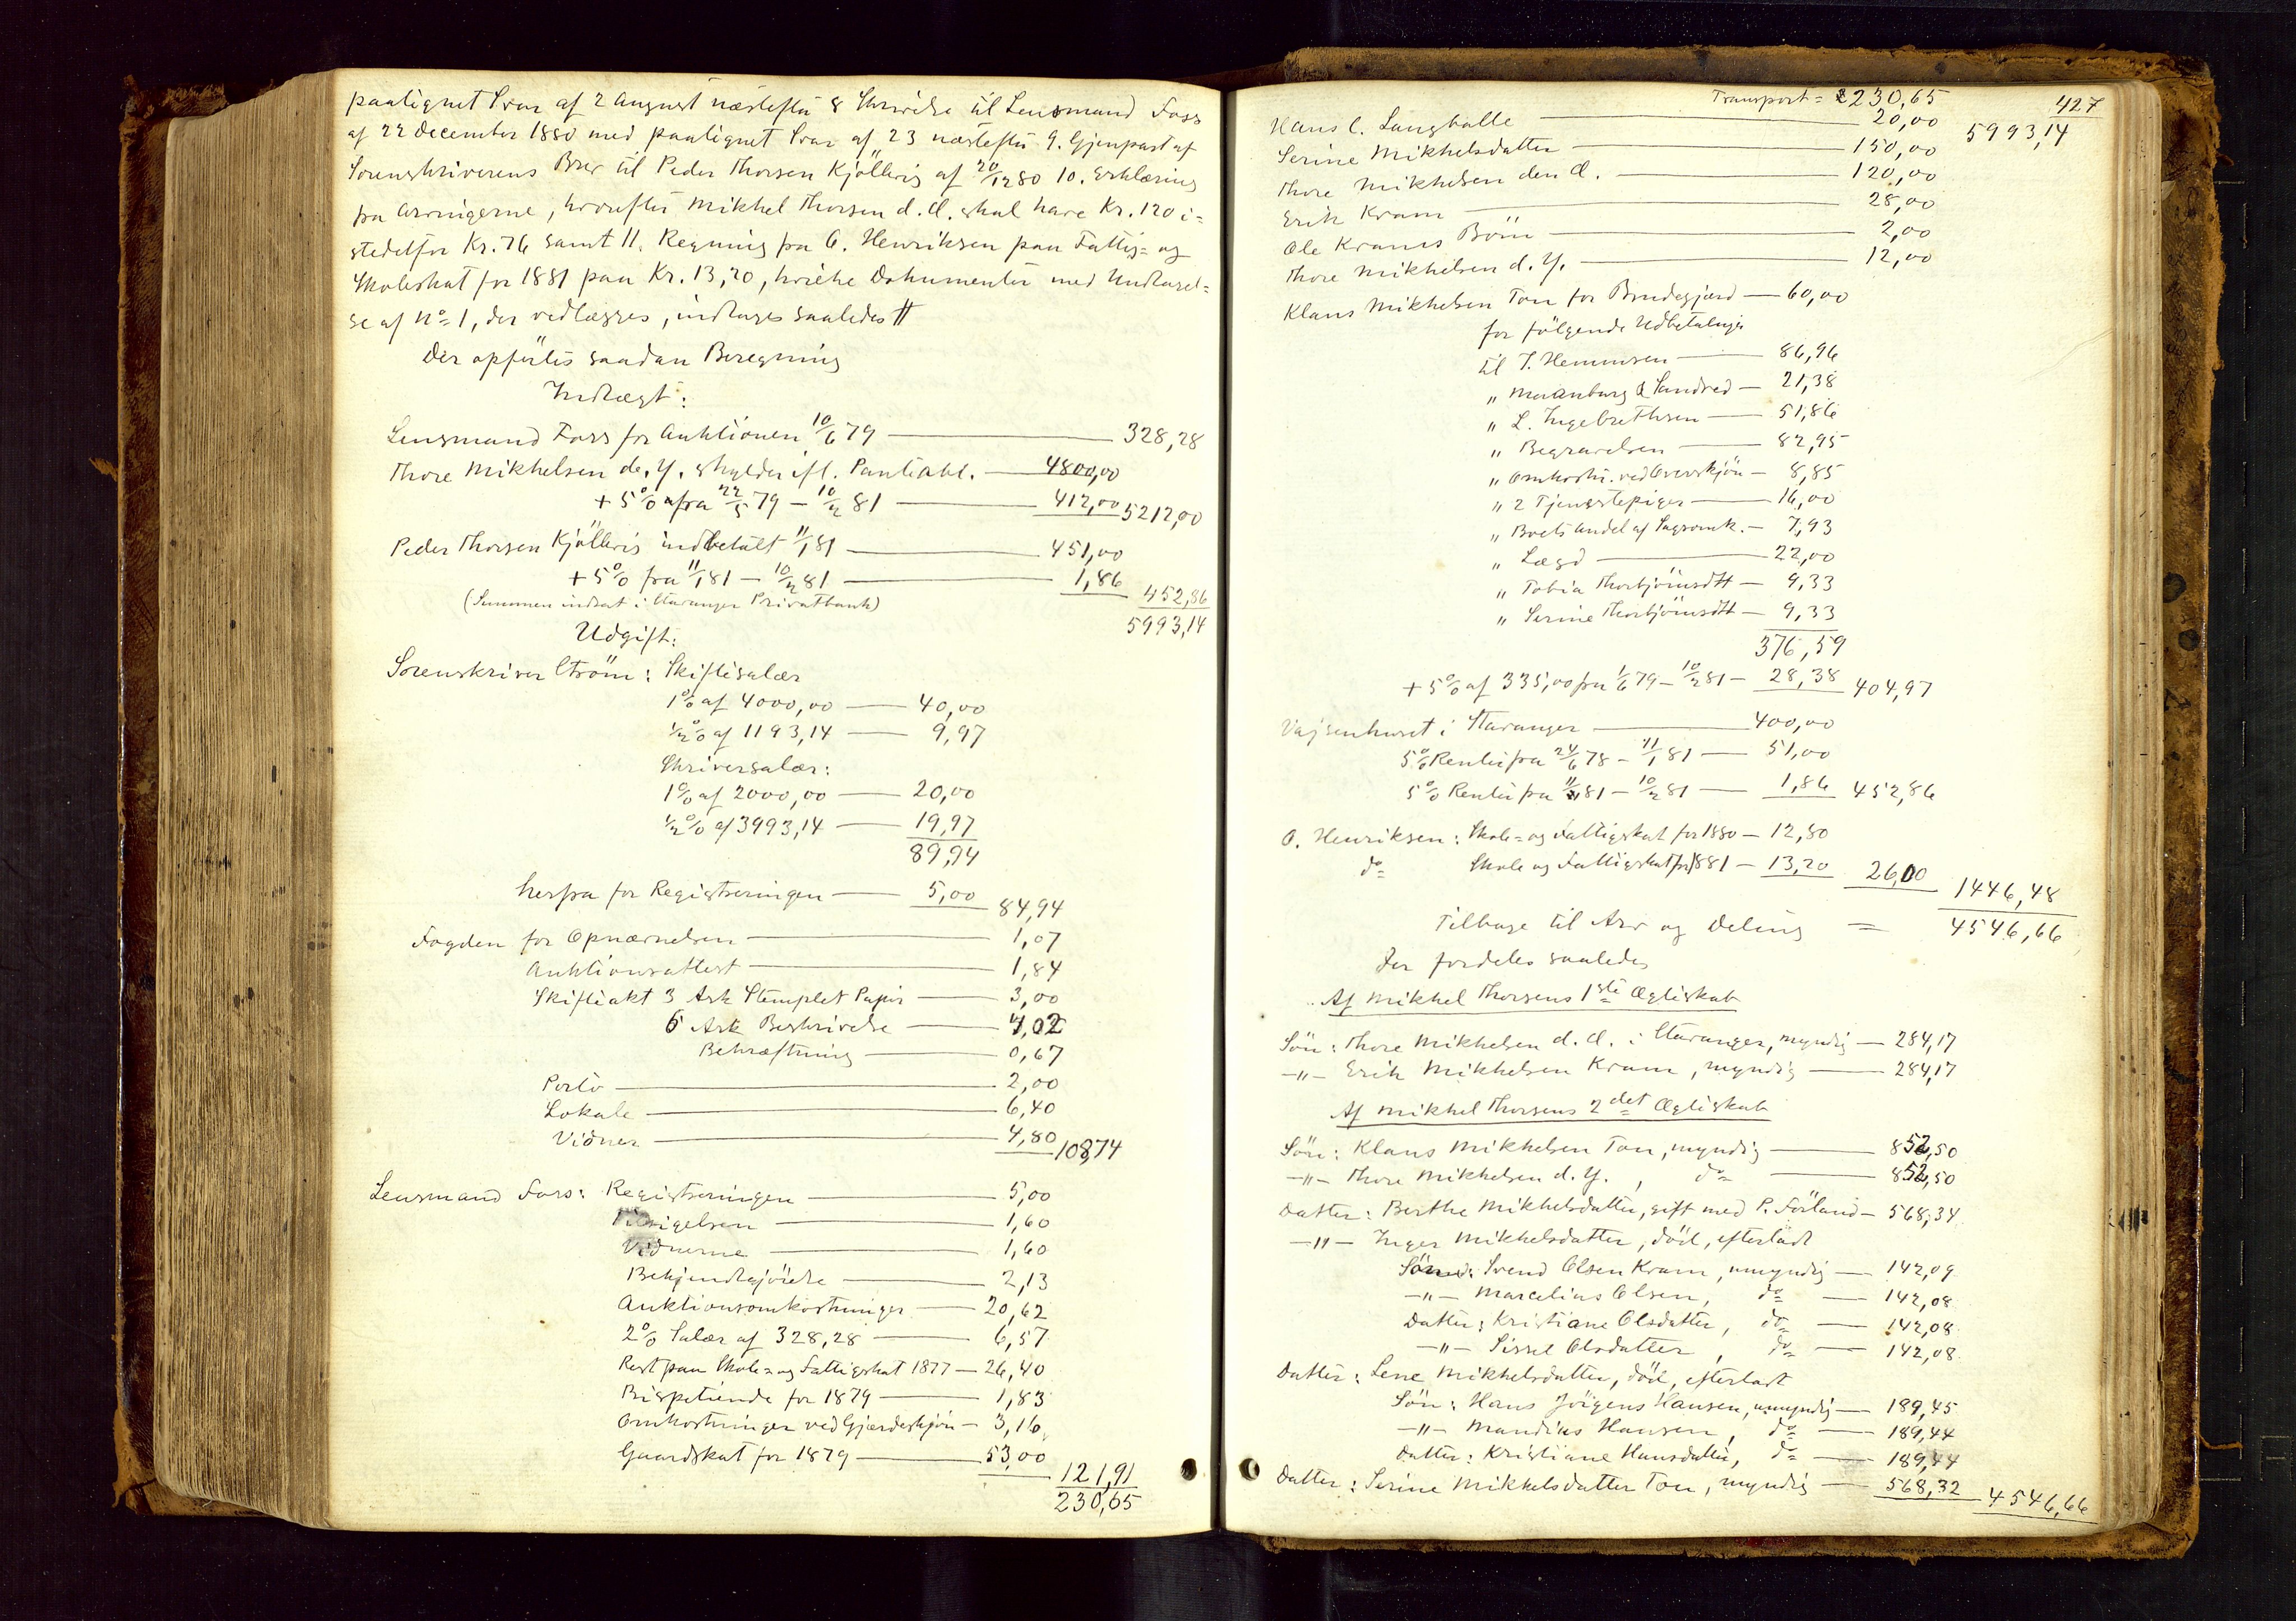 paalignet Svar af 2 August næstefter 8 Skrivelse til Lensmand Foss
af 22 December 1880 med paalignet Svar af 23 næstefter 9. Gjenpart af
Sorenskriverens Brev til Peder Thorsen Kjøllevig af 20/12 80 10. Erklæring
fra Arvingerne, hvorefter Mikkel Thorsen d. Æ. skal have Kr. 120 i=
stedetfor Kr. 76 samt 11. Regning fra O. Henriksen paa Fattig= og
Skoleskat for 1881 paa Kr. 13,20, hvilke Dokumenter med Undtagel=
se af No 1, der vedlægges, indtages saaledes #
Der opførtes saadan Beregning
Indtægt:
Lensmand Foss for Auktionen 10/6 79 — 328,28
Thore Mikkelsen d. Y. skylder ifl. Panteobl. — 4800,00
+ 5% fra 22/5 79 – 10/2 81 — 412,00 5212,00
Peder Thorsen Kjøllevig indbetalt 11/1 81 — 451,00
+ 5% fra 11/1 81 – 10/2 81 — 1,86 452,86
(Summen indsat i Stavanger Privatbank)
5993,14
Udgift:
Sorenskriver Strøm: Skiftesalær
1% af 4000,00 — 40,00
1/2% af 1193,14 — 9,97
Skriversalær:
1% af 2000,00 — 20,00
1/2% af 3993,14 — 19,97
89,94
herfra for Registreringen — 5,00 84,94
Fogden for Opnævnelsen — 1,07
Auktionsattest — 1,84
Skifteakt 3 Ark Stemplet Papir — 3,00
6 Ark Beskrivelse — 4,02
Bekræftning — 0,67
Porto — 2,00
Lokale — 6,40
Vidner — 4,80 108,74
Lensmand Foss: Registreringen — 5,00
— 1,60
Vidnerne — 1,60
Bekjendtgjørelse — 2,13
Auktionsomkostninger — 20,62
2% Salær af 328,28 — 6,57
Rest paa Skole= og Fattigskat 1877 — 26,40
Bispetiende for 1879 — 1,83
Omkostninger ved Gjærdeskjøn — 3,16
Gaardskat for 1879 — 53,00
121,91
230,65
427
Transport = 230,65 5993,14
Hans C. Langballe — 20,00
Serine Mikkelsdatter — 150,00
Thore Mikkelsen den Æ. — 120,00
Erik Kram — 28,00
Ole Krams Børn — 2,00
Thore Mikkelsen d. Y. — 12,00
Klaus Mikkelsen Tou for Brudegjærd — 60,00
for følgende Udbetalinger
til T. Hemmisen — 86,96
" Maranburg & Sandved — 21,38
" L. Ingebrethsen — 51,86
" Begravelsen — 82,95
" Omkostn. ved Overskjøn — 8,85
" 2 Tjenestepiger — 16,00
" Boets Andel af Sagsomk. — 7,93
" Lægd — 22,00
" Tobia Thorbjørnsdtt — 9,33
" Serine Thorbjørnsdtt — 9,33
376,59
+ 5% af 335,00 fra 1/6 79 – 10/2 81 — 28,38 404,97
Vajsenhuset i Stavanger — 400,00
5% Renter fra 24/6 78 – 11/1 81 — 51,00
5% Renter fra 11/1 81 – 10/2 81 — 1,86 452,86
O. Henriksen: Skole= og Fattigskat for 1880 — 12,80
do Skole og Fattigskat for 1881 — 13,20 26,00 1446,48
Tilbage til Arv og Deling = 4546,66
der fordeles saaledes
Af Mikkel Thorsens 1ste Ægteskab
Søn: Thore Mikkelsen d. Æ. i Stavanger, myndig — 284,17
–"– Erik Mikkelsen Kram, myndig — 284,17
Af Mikkel Thorsens 2det Ægteskab
Søn: Klaus Mikkelsen Tou, myndig — 852,50
–"– Thore Mikkelsen d. Y., do — 852,50
Datter: Berthe Mikkelsdatter, gift med P. Førland — 568,34
–"– Inger Mikkelsdatter, død, efterladt
Søn: Svend Olsen Kram, umyndig — 142,09
–"– Marcelius Olsen, do — 142,08
Datter: Kristiane Olsdatter, do — 142,08
–"– Sissel Olsdatter, do — 142,08
Datter: Lene Mikkelsdatter, død, efterladt
Søn: Hans Jørgens Hansen, umyndig — 189,45
–"– Mandius Hansen, do — 189,44
Datter: Kristiane Hansdatter, do — 189,44
Datter: Serine Mikkelsdatter Tou, myndig — 568,32 4546,66